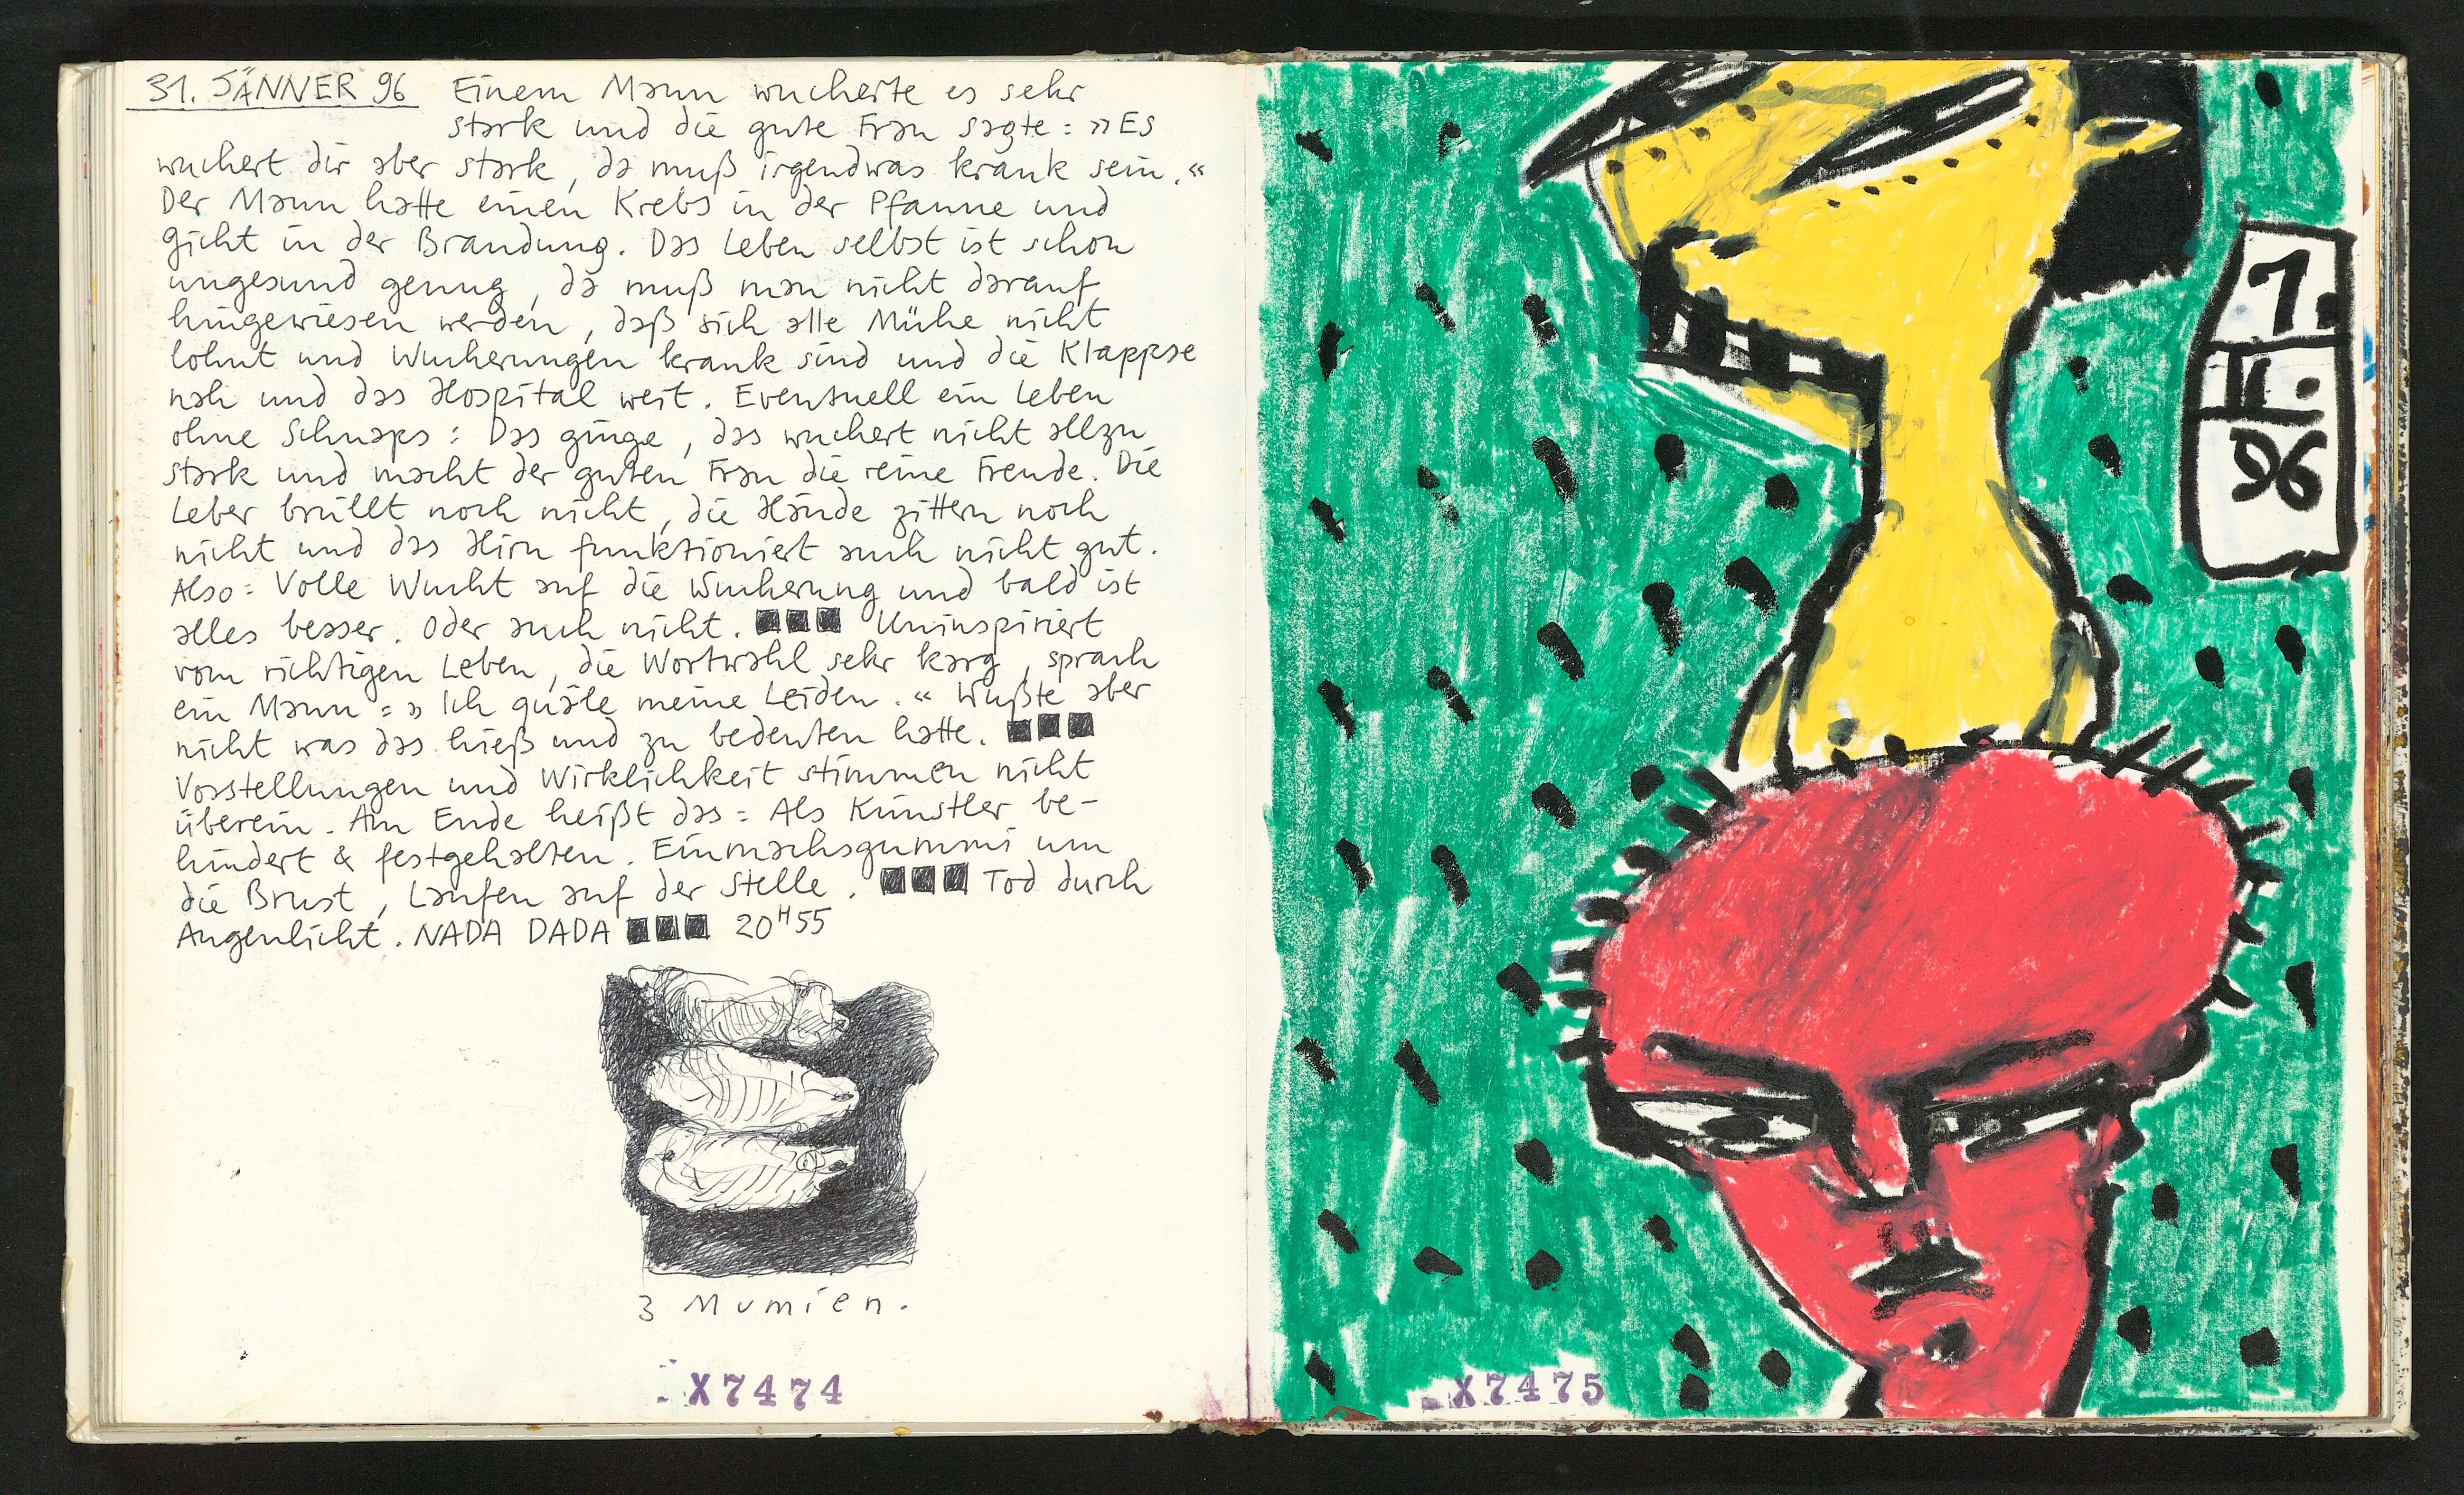 31. JÄNNER 96 Einem Mann wucherte es sehr
stark und die gute Frau sagte: »Es
wuchert dir aber stark, da muß irgendwas krank sein.«
Der Mann hatte einen Krebs in der Pfanne und
Gicht in der Brandung. Das Leben selbst ist schon
ungesund genug, da muß man nicht darauf
hingewiesen werden, daß sich alle Mühe nicht
lohnt und Wucherungen krank sind und die Klappse
nah und das Hospital weit. Eventuell ein Leben
ohne Schnaps: Das ginge, das wuchert nicht allzu
stark und macht der guten Frau die reine Freude. Die
Leber brüllt noch nicht, die Hände zittern noch
nicht und das Hirn funktioniert auch nicht gut.
Also: Volle Wucht auf die Wucherung und bald ist
alles besser. Oder auch nicht. ■■■ Uninspiriert
vom richtigen Leben, die Wortwahl sehr karg, sprach
ein Mann: »Ich quäle meine Leiden.« Wußte aber
nicht was das hieß und zu bedeuten hatte. ■■■
Vorstellungen und Wirklichkeit stimmen nicht
überein. Am Ende heißt das: Als Künstler be-
hindert & festgehalten. Einmachsgummi um
die Brust, Laufen auf der Stelle. ■■■ Tod durch
Augenlicht. NADA DADA ■■■ 20H55
3 Mumien.
X7474
1.
II.
96
X7475